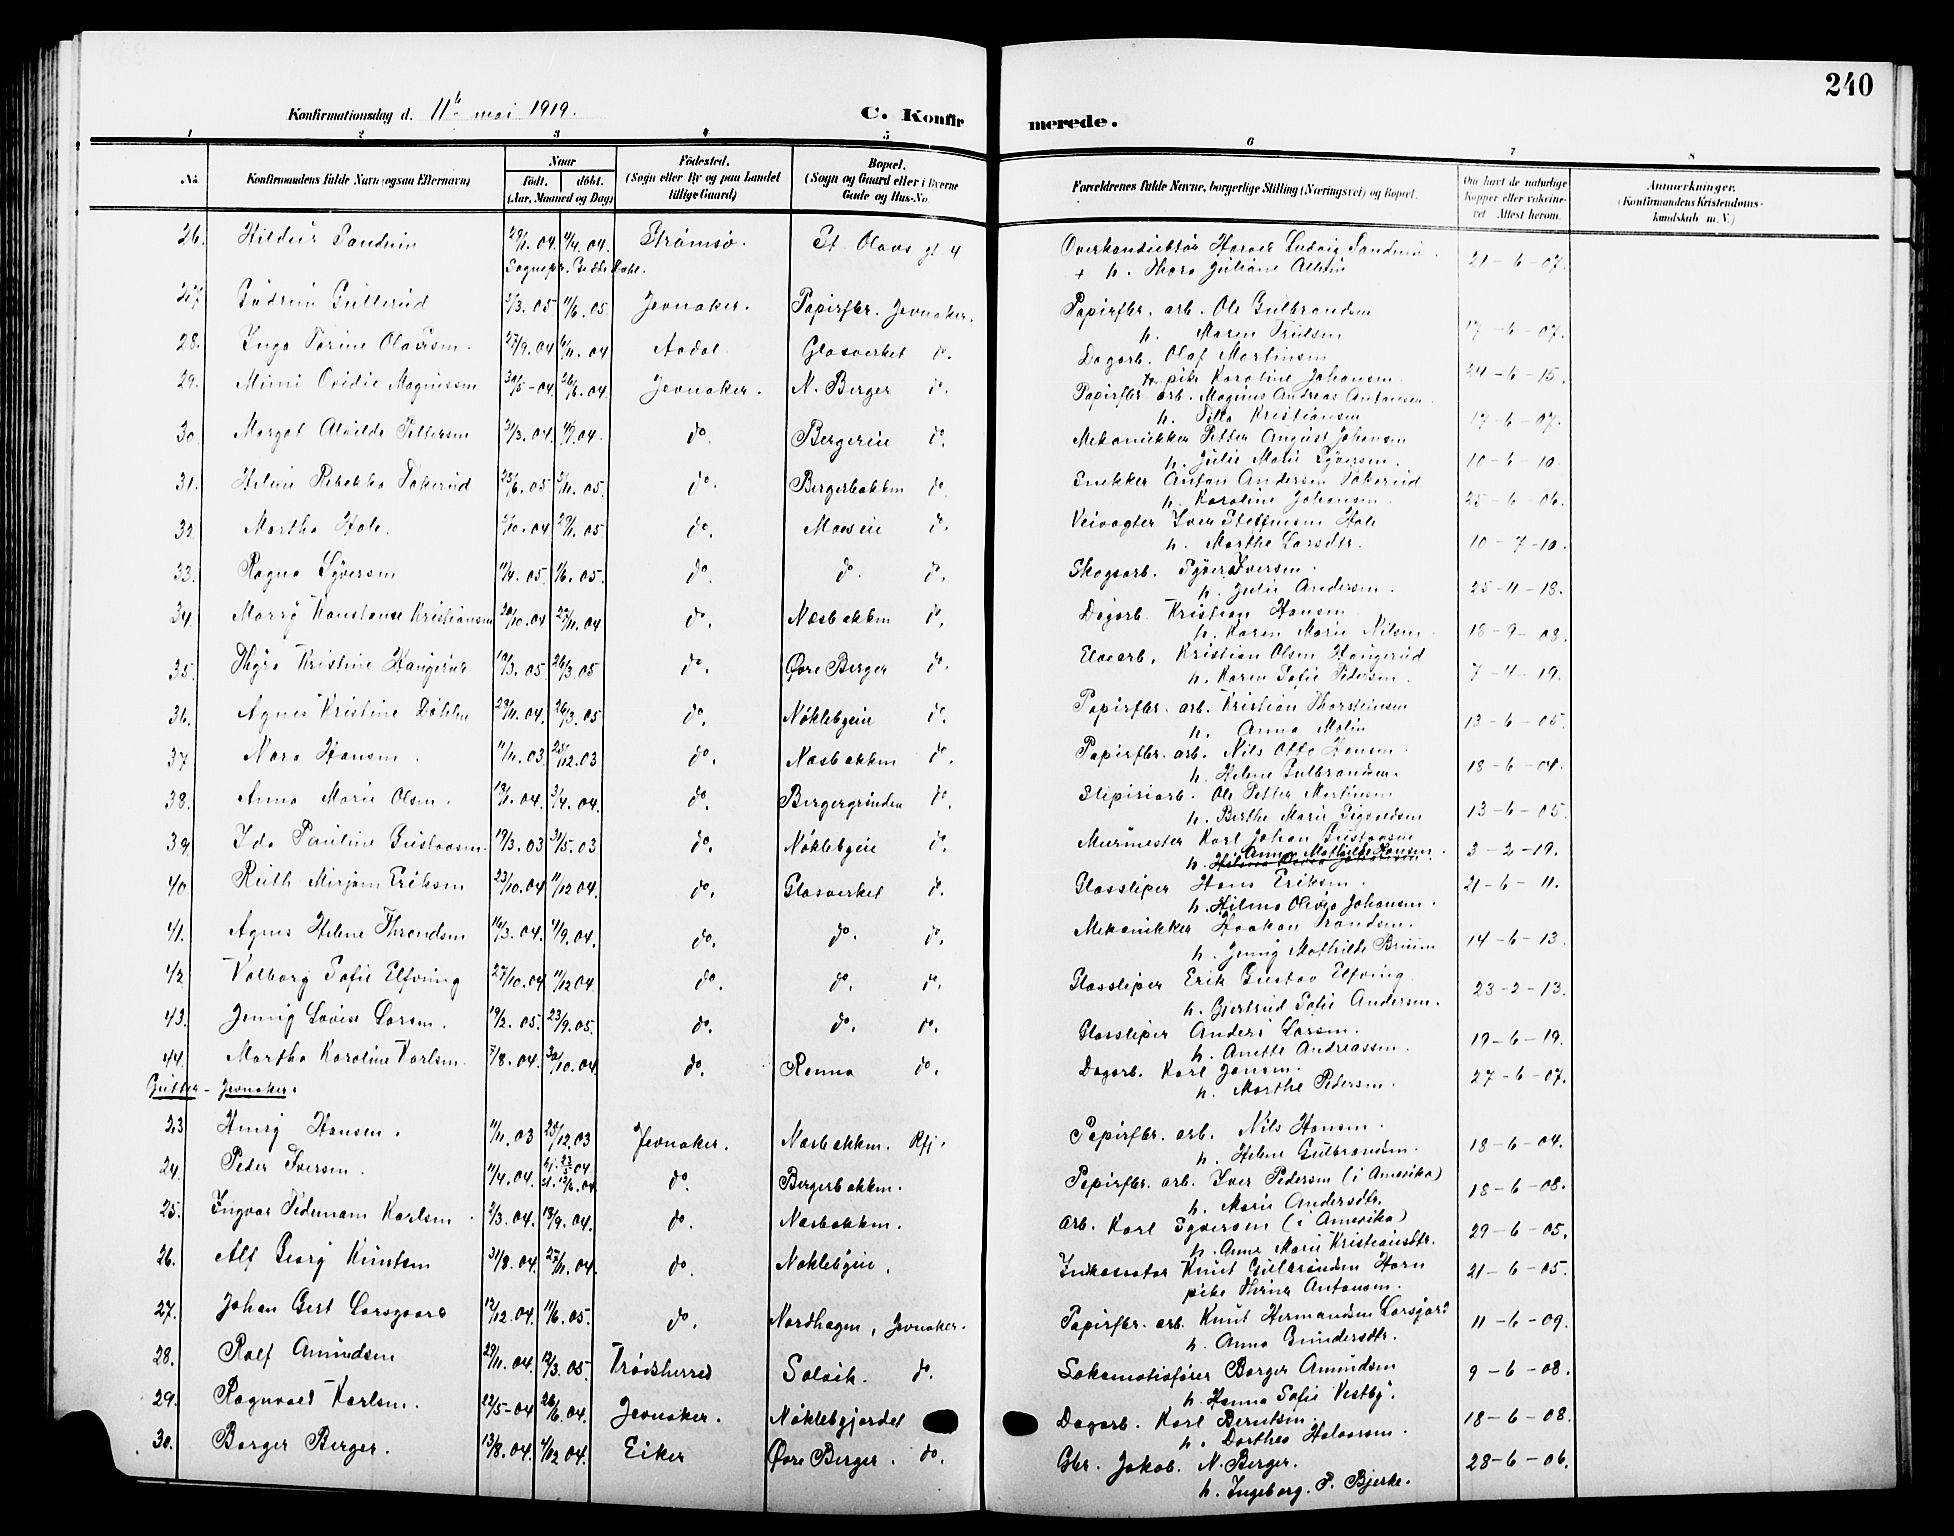 240
Konfirmationsdag d. 11te mai 1919. C. Konfirmerede.
1 2 3 4 5 6 7 8
No Konfirmandens fulde Navn (ogsaa Efternavn) Naar født. døbt. (Aar, Maaned og Dag) Fødested. (Sogn eller By og paa Landet tillige Gaard) Bopæl. (Sogn og Gaard eller i Byerne Gade og Hus-No. Forældrenes fulde Navne, borgerlige Stilling (Næringsvei) og Bopæl. Om havt de naturlige Kopper eller vakcineret. Attest herom. Anmerkninger. (Konfirmandens Kristendomskundskab m. V.)
26. Hildur Sandum 29/1.04 4/4.04 Strømsø. St. Olavs gt 4 Overkonduktør Harald Ludvig Sandum.
Sognepr. Bidtz Dahl. + h. Thora Juliane 21-6-07.
27. Gudrun Gulterud 5/3.05 11/6.05 Jevnaker. Papirfbr. Jevnaker. Papirfbr. arb. Ole Gulbrandsen
h. Maren Trulsen 17-6-07.
28. Inga Torine Olausen. 27/9.04 6/11.04 Aadal Glasverket do. Dagarb. Olaf Martinsen
pike Karoline Johansen. 24-6-15.
29. Mimi Ovidie Magnussen 30/5-04 26/6.04 Jevnaker. N. Berger do. Papirfbr. arb. Magnus Andreas Antonsen.
h. Tilla Kristiansen 17-6-07.
30. Margot Alvilde Pettersen 3/3.04 4/9.04. do. Bergereie do. Mekanikker Petter August Johansen
h. Julie Marie Syversen. 10-6-10.
31. Helene Rebekka Tokerud 25/6.05 5/11.05. do. Bergerbakken do. Snekker Anton Andersen Tokerud
h. Karoline Johansen. 25-6-06.
32. Martha Hole. 5/10.04 29/1.05 do. Moeseie do. Veivogter Iver Steffensen Hole
h. Marthe Larsdtr. 10-7-10.
33. Ragna Syversen 11/4.05 1/6.05. do. do. do. Skogsarb. Syver Iversen.
h. Julie Andersen. 25-11-18.
34. Marry Konstanse Kristiansen 20/10.04 27/11.04 do. Næsbakken do. Dagarb. Kristian Hansen
h. Karen Marie Nilsen. 18-9-08.
35. Thyra Kristine Haugerud 19/3.05 26/3.05 do. Øvre Berger do. Elvearb. Kristian Olsen Haugerud
h. Karen Sofie Pedersen. 7-4-19.
36. Agnes Kristine Døhlen 29/11.04. 26/3.05 do. Nøklebyeie do. Papirfbr. arb. Kristian Thorsteinsen
h. Anna Molin 13-6-05.
37. Nora Hansen. 11/11.03. 25/12.03 do. Næsbakken do. Papirfbr. arb. Nils Otto Hansen.
h. Helene Gulbrandsen. 18-6-04.
38. Anna Marie Olsen. 19/1.04. 3/4.04. do. Bergergrinden do. Sliperiarb. Ole Petter Martinsen
h. Berthe Marie Sigvaldsen 13-6-05.
39. Ida Pauline Gustavsen. 19/3.03 31/5.03 do. Nøklebyeie do. Murmester Karl Johan Gustavsen
h. Anna Mathilde Hansen. 3-2-19.
40 Ruth Mirjam Eriksen 23/10.04 11/12 04. do. Glasverket do. Glassliper Hans Eriksen.
h. Hilma Olivia Johansen. 21-6-11.
41. Agnes Helene Throndsen 16/3.04. 4/9.04. do. do. do. Mekanikker Haakon Trondsen.
h. Jenny Mathilde Bruun 14-6-13.
42 Valborg Sofie Elfving 27/10.04 11/12 04. do. do. do. Glassliper Erik Gustav Elfving.
h. Gjertrud Sofie Andersen. 23-2-13.
43. Jenny Lovise Larsen. 19/2.05. 23/9.05. do. do. do. Glassliper Anders Larsen.
h. Anette Andreassen. 19-6-19.
44. Martha Karoline Karlsen. 7/8.04. 30/10.04. do. Renna do. Dagarb. Karl Jansen.
h. Marthe Pedersen. 27-6-07.
Gutter - Jevnaker:
23 Henry Hansen. 11/11.03 25/12.03 Jevnaker. Næsbakken. Rfj. Papirfbr. arb. Nils Hansen.
h. Helene Gulbrandsen. 18-6-04.
24. Peder Iversen. 11/4.04. hj. 23/5 04. st. 12/6.04. do. Bergerbakken. Papirfbr. arb. Iver Pedersen (i Amerika)
h. Marie Andersdtr. 18-6-08.
25. Ingvar Tidemann Karlsen. 2/3.04. 18/9.04. do. Næsbakken. arb. Karl Syversen (i Amerika)
h. Anne Marie Kristiansdtr. 29-6-05.
26. Alf Georg Knutsen 31/8.04. 27/11.04. do. Nøklebyeie. Inkassator Knut Gulbrandsen Horn
pike Thrine Antonsen. 21-6-05.
27. Johan Gert Larsgaard 12/12.04. 11/6.05. do. Nordhagen, Jevnaker. Papirfbr. arb. Knut Hermandsen Larsgard
h. Anna Gundersdtr. 11-6-09.
28. Rolf Amundsen 29/11.04. 12/3.05. Frøisherred Soløik. do. Lokomotivfører Borger Amundsen
h. Hanna Sofie Vestby. 9-6-08.
29. Ragnvald Karlsen. 22/5-04 26/6.04. Jevnaker. Nøklebyjordet Dagarb. Karl Berntsen.
h. Dorthea Halvorsen. 18-6-08.
30. Borger Berger. 13/8.04. 4/12 04. Eiker Øvre Berger. do. Gbr. Jakob. N. Berger.
h. Ingeborg. P. Bjerke. 28-6-06.